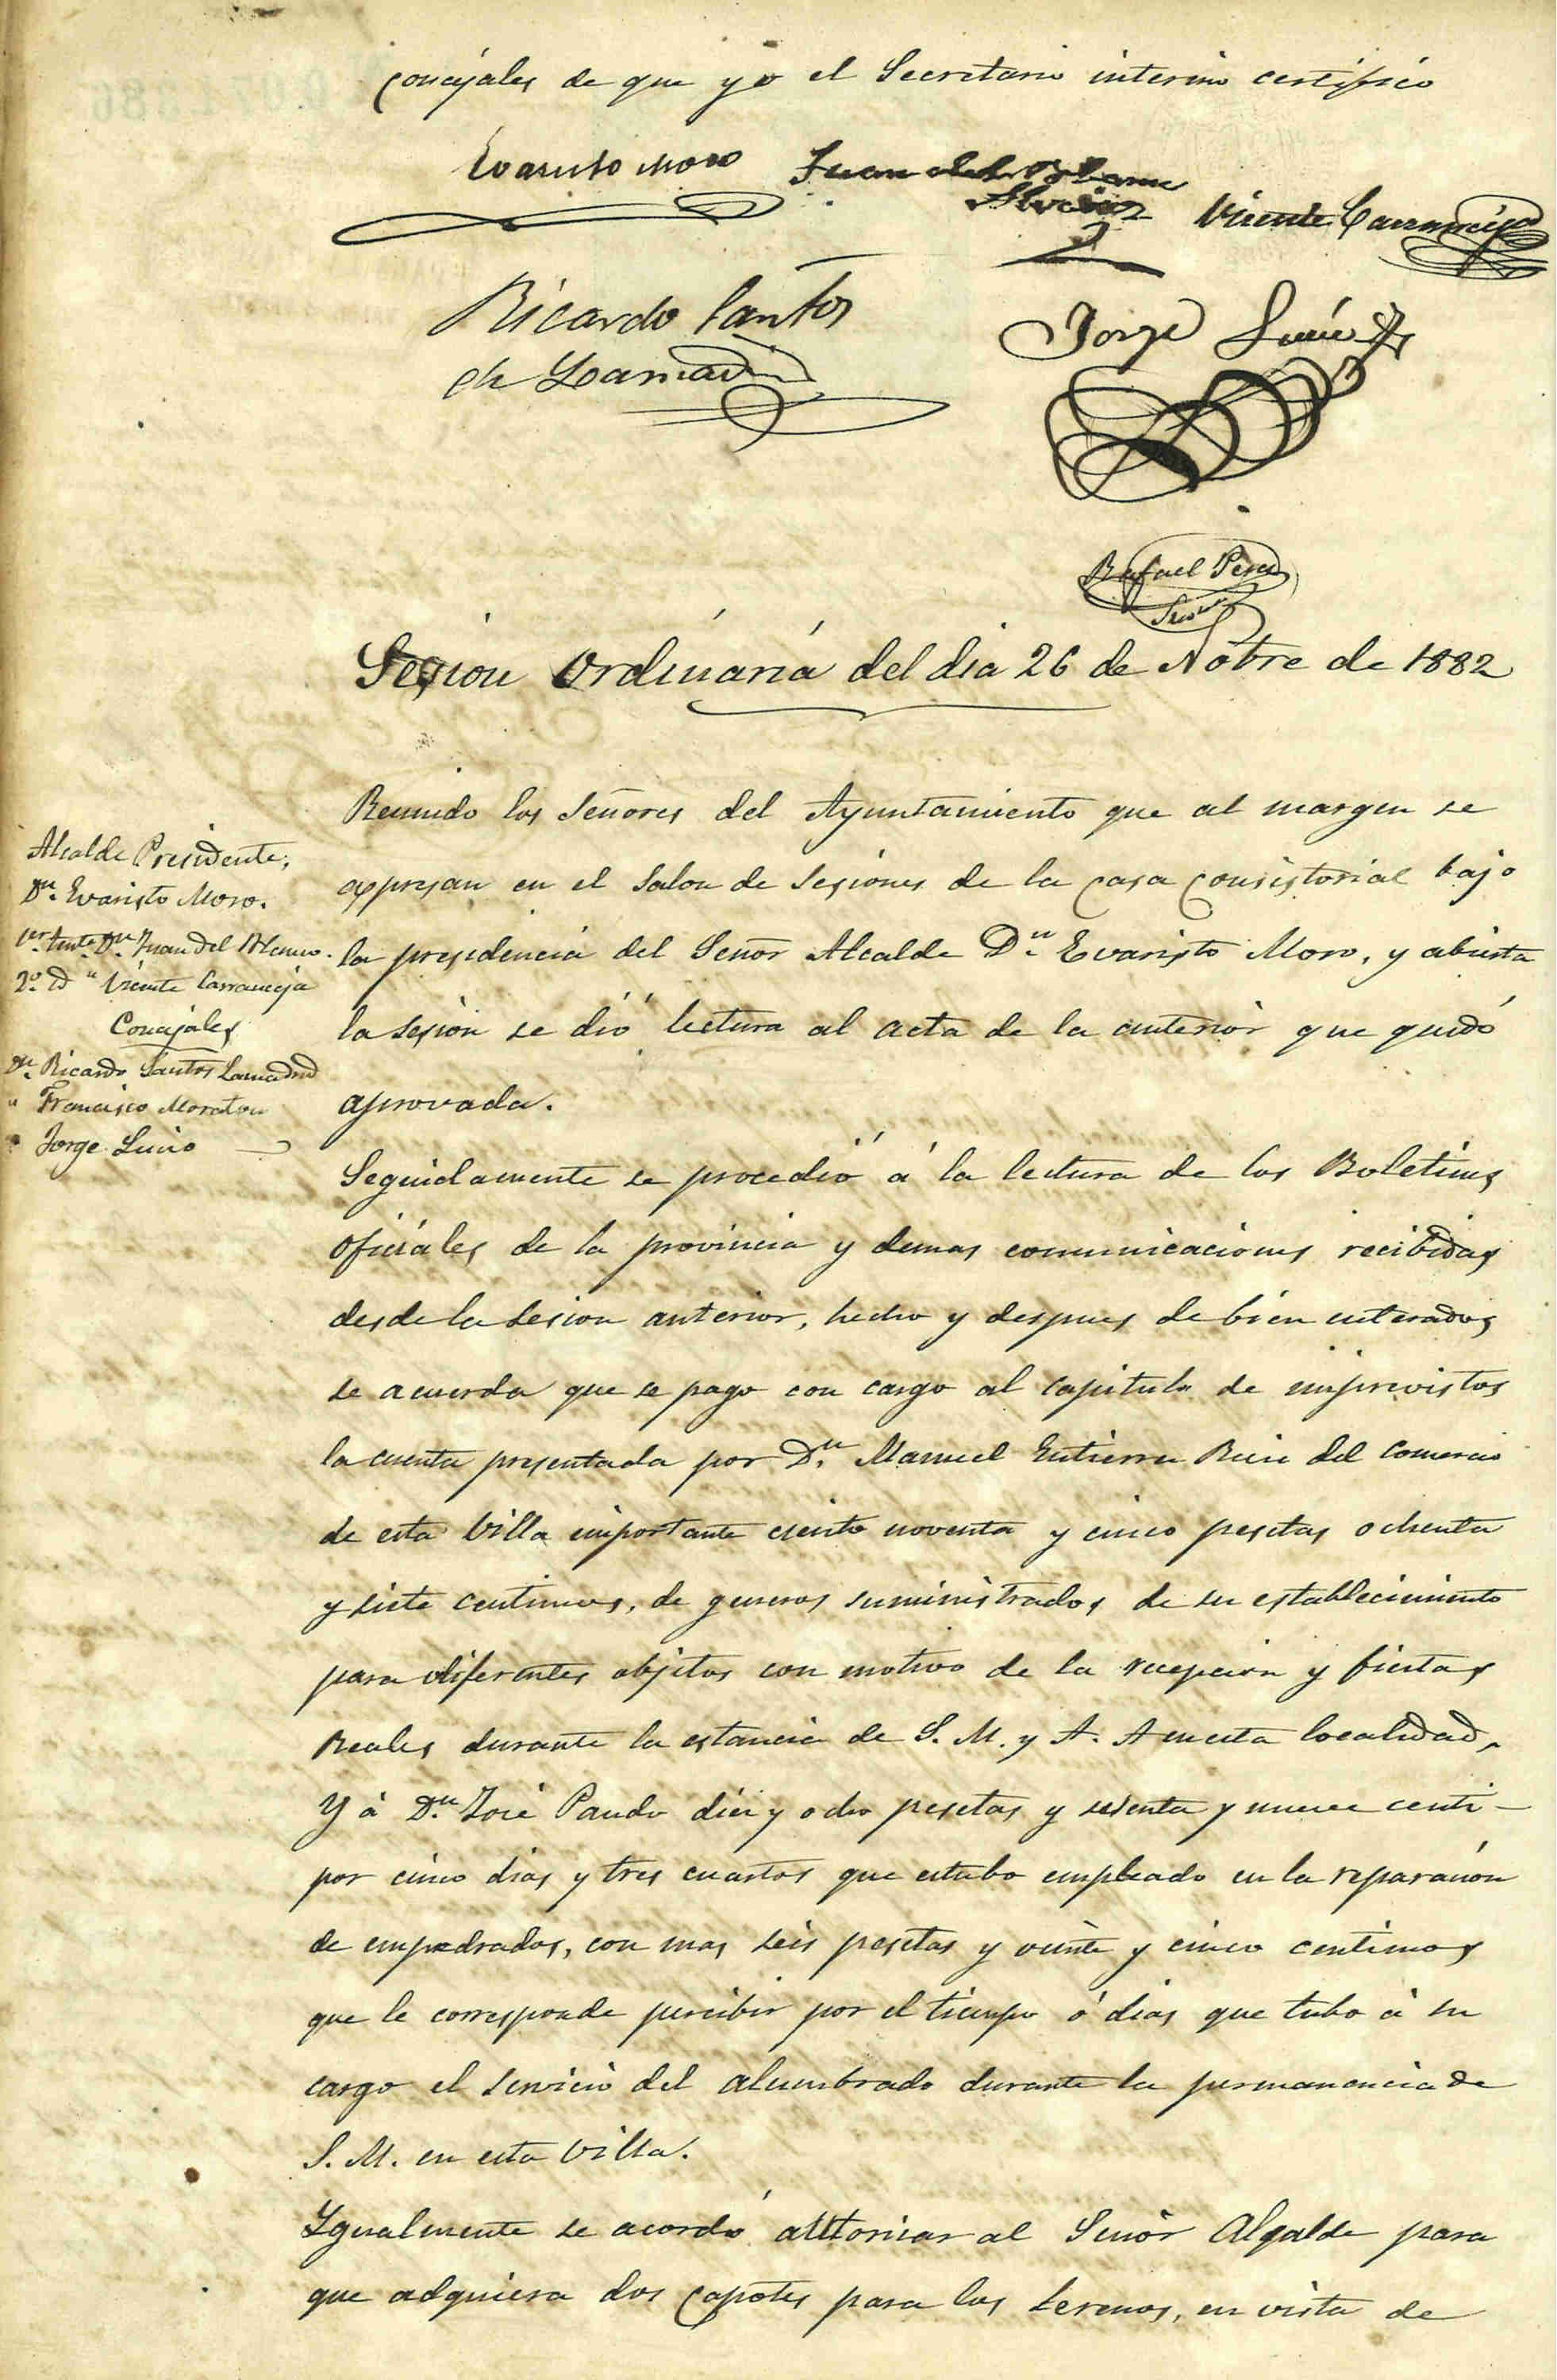 concejales de que yo el Secretario interino certifico
Evaristo Moro Juan del Blanco
Vicente Carranceja
Ricardo Santos
de Lamadrid
Jorge Lucio
Rafael Perez
Srio
Sesion Ordinaria del dia 26 de Nobre de 1882
Alcalde Presidente,
Dn. Evaristo Moro.
1er. tente. Dn. Juan del Blanco.
2º. Dn Vicente Carranceja
Concejales
Dn. Ricardo Santos Lamadrid
" Francisco Moraton
" Jorge Lucio
Reunido los Señores del Ayuntamiento que al margen se
expresan en el Salon de Sesiones de la casa consistorial bajo
la presidencia del Señor Alcalde Dn. Evaristo Moro, y abierta
la sesion se dió lectura al acta de la anterior que quedó
aprovada.
Seguidamente se procedió á la lectura de los Boletines
oficiales de la provincia y demas comunicaciones recibidas
desde la sesion anterior, hecho y despues de bien enterados
se acuerda que se pago con cargo al capitulo de imprevistos
la cuenta presentada por Dn. Manuel Gutierrez del Comercio
de esta Villa importante ciento noventa y cinco pesetas ochenta
y siete centimos, de generos suministrados de su establecimiento
para diferentes objetos con motivo de la recepcion y fiestas
Reales durante la estancia de S. M. y A. A en esta localidad,
Y á Dn. José Pando diez y ocho pesetas y sesenta y nueve centi-
por cinco dias y tres cuartos que estubo empleado en la reparacion
de empedrados, con mas seis pesetas y veinte y cinco centimos
que le corresponde percibir por el tiempo ó dias que tubo á su
cargo el servicio del alumbrado durante la permanencia de
S. M. en esta Villa.
Igualmente se acordó auttorizar al Señor Alcalde para
que adquiera dos capotes para los serenos, en vista de